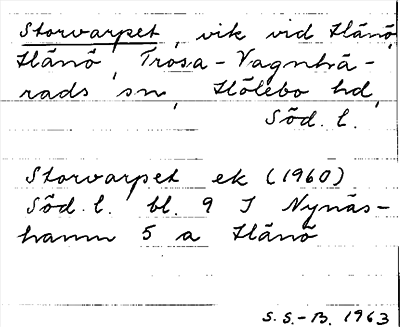 Storvarpet, vik vid Hånö,
Hånö, Trosa-Vagnhä-
rads sn, Hölebo hd,
Söd. l.
Storvarpet ek (1960)
Söd. l. bl. 9 I Nynäs-
hamn 5 a Hånö
S.S.-B. 1963